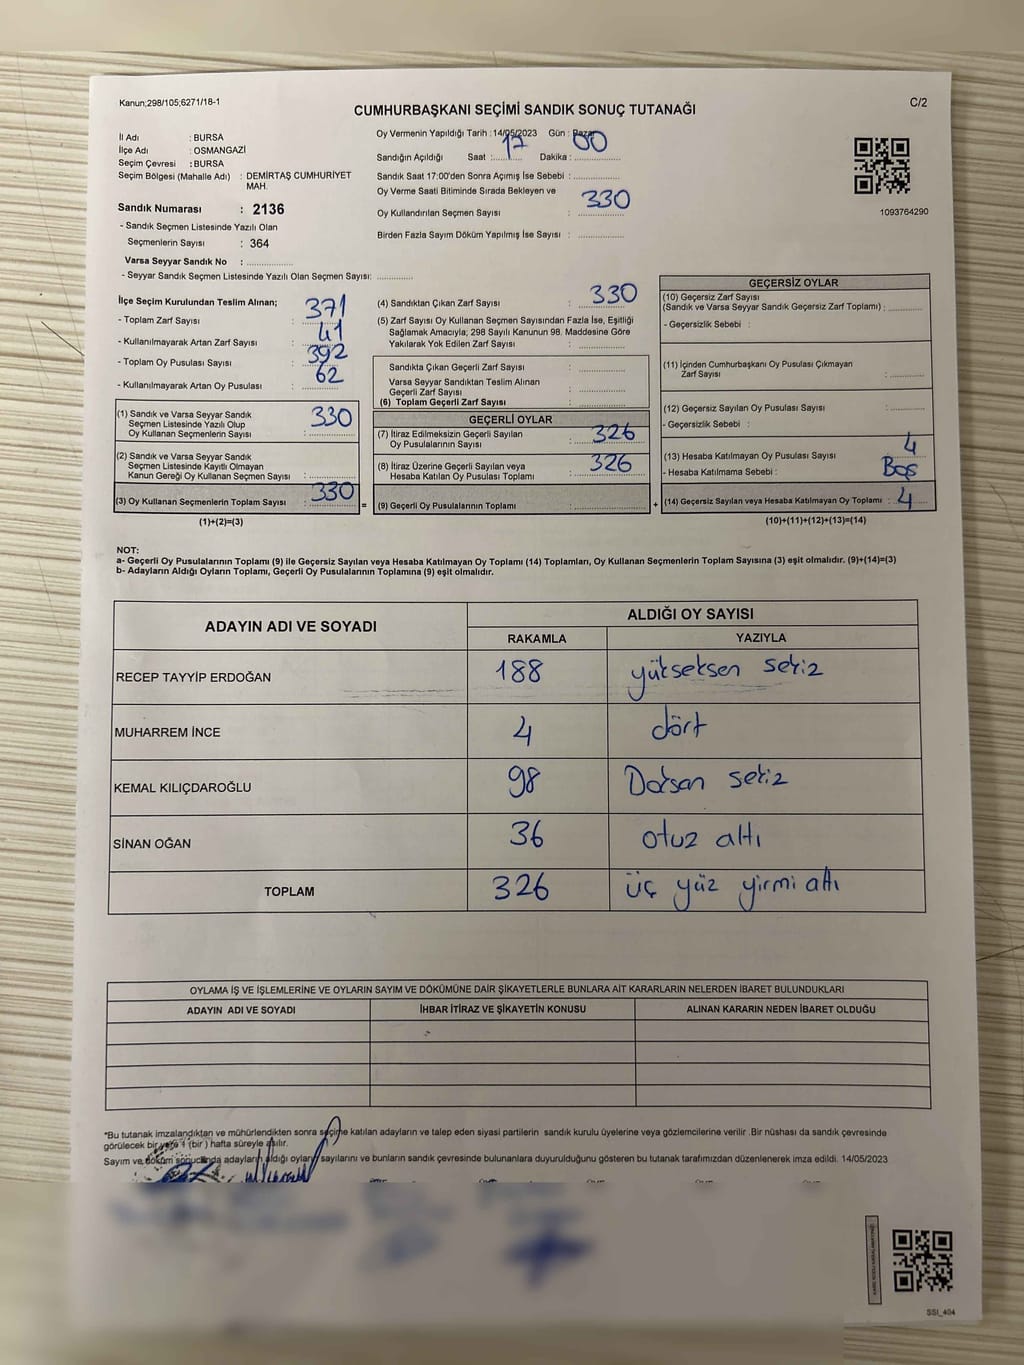 Kanun;298/105;6271/18-1
CUMHURBAŞKANI SEÇİMİ SANDIK SONUÇ TUTANAĞI
C/2
İl Adı : BURSA
İlçe Adı : OSMANGAZİ
Seçim Çevresi : BURSA
Seçim Bölgesi (Mahalle Adı) : DEMİRTAŞ CUMHURİYET
MAH.
Sandık Numarası : 2136
- Sandık Seçmen Listesinde Yazılı Olan
Seçmenlerin Sayısı : 364
Varsa Seyyar Sandık No : ..............
- Seyyar Sandık Seçmen Listesinde Yazılı Olan Seçmen Sayısı: ............
Oy Vermenin Yapıldığı Tarih : 14/05/2023 Gün : Pazar
Sandığın Açıldığı Saat : 17 Dakika : 00
Sandık Saat 17:00'den Sonra Açımış İse Sebebi : ..............
Oy Verme Saati Bitiminde Sırada Bekleyen ve
Oy Kullandırılan Seçmen Sayısı : 330
Birden Fazla Sayım Döküm Yapılmış İse Sayısı : ..............
1093764290
İlçe Seçim Kurulundan Teslim Alınan;
- Toplam Zarf Sayısı : 371
- Kullanılmayarak Artan Zarf Sayısı : 41
- Toplam Oy Pusulası Sayısı : 392
- Kullanılmayarak Artan Oy Pusulası : 62
(1) Sandık ve Varsa Seyyar Sandık
Seçmen Listesinde Yazılı Olup
Oy Kullanan Seçmenlerin Sayısı : 330
(2) Sandık ve Varsa Seyyar Sandık
Seçmen Listesinde Kayıtlı Olmayan
Kanun Gereği Oy Kullanan Seçmen Sayısı : ..............
(3) Oy Kullanan Seçmenlerin Toplam Sayısı : 330
(1)+(2)=(3)
=
(4) Sandıktan Çıkan Zarf Sayısı : 330
(5) Zarf Sayısı Oy Kullanan Seçmen Sayısından Fazla İse, Eşitliği
Sağlamak Amacıyla; 298 Sayılı Kanunun 98. Maddesine Göre
Yakılarak Yok Edilen Zarf Sayısı : ..............
Sandıkta Çıkan Geçerli Zarf Sayısı : ..............
Varsa Seyyar Sandıktan Teslim Alınan
Geçerli Zarf Sayısı : ..............
(6) Toplam Geçerli Zarf Sayısı : ..............
GEÇERLİ OYLAR
(7) İtiraz Edilmeksizin Geçerli Sayılan
Oy Pusulalarının Sayısı : 326
(8) İtiraz Üzerine Geçerli Sayılan veya
Hesaba Katılan Oy Pusulası Toplamı : 326
(9) Geçerli Oy Pusulalarının Toplamı : ..............
+
GEÇERSİZ OYLAR
(10) Geçersiz Zarf Sayısı
(Sandık ve Varsa Seyyar Sandık Geçersiz Zarf Toplamı) : ............
- Geçersizlik Sebebi :
(11) İçinden Cumhurbaşkanı Oy Pusulası Çıkmayan
Zarf Sayısı : ............
(12) Geçersiz Sayılan Oy Pusulası Sayısı : ............
- Geçersizlik Sebebi :
(13) Hesaba Katılmayan Oy Pusulası Sayısı : 4
- Hesaba Katılmama Sebebi : Boş
(14) Geçersiz Sayılan veya Hesaba Katılmayan Oy Toplamı : 4
(10)+(11)+(12)+(13)=(14)
NOT:
a- Geçerli Oy Pusulalarının Toplamı (9) ile Geçersiz Sayılan veya Hesaba Katılmayan Oy Toplamı (14) Toplamları, Oy Kullanan Seçmenlerin Toplam Sayısına (3) eşit olmalıdır. (9)+(14)=(3)
b- Adayların Aldığı Oyların Toplamı, Geçerli Oy Pusulalarının Toplamına (9) eşit olmalıdır.
ADAYIN ADI VE SOYADI ALDIĞI OY SAYISI
RAKAMLA YAZIYLA
RECEP TAYYİP ERDOĞAN 188 yükseksen sekiz
MUHARREM İNCE 4 dört
KEMAL KILIÇDAROĞLU 98 Doksan sekiz
SİNAN OĞAN 36 otuz altı
TOPLAM 326 üç yüz yirmi altı
OYLAMA İŞ VE İŞLEMLERİNE VE OYLARIN SAYIM VE DÖKÜMÜNE DAİR ŞİKAYETLERLE BUNLARA AİT KARARLARIN NELERDEN İBARET BULUNDUKLARI
ADAYIN ADI VE SOYADI İHBAR İTİRAZ VE ŞİKAYETİN KONUSU ALINAN KARARIN NEDEN İBARET OLDUĞU
*Bu tutanak imzalandıktan ve mühürlendikten sonra seçime katılan adayların ve talep eden siyasi partilerin sandık kurulu üyelerine veya gözlemcilerine verilir .Bir nüshası da sandık çevresinde
görülecek bir yere 1 (bir ) hafta süreyle asılır.
Sayım ve döküm sonucunda adayların aldığı oyların sayılarını ve bunların sandık çevresinde bulunanlara duyurulduğunu gösteren bu tutanak tarafımızdan düzenlenerek imza edildi. 14/05/2023
SSI_404